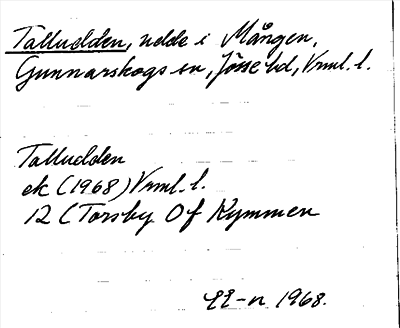 Talludden, udde i Mången,
Gunnarskogs sn, Jösse hd, Vrml. l.
Talludden
ek (1968) Vrml. l.
12 C Torsby Of Kymmen
1968.